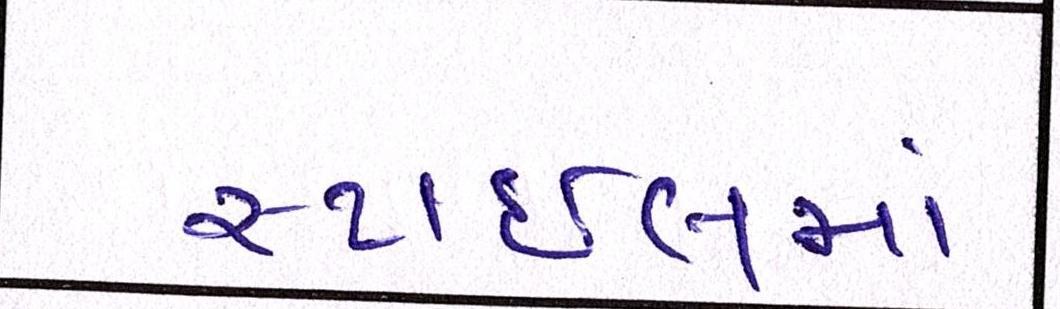 સ્ટાઈલમાં